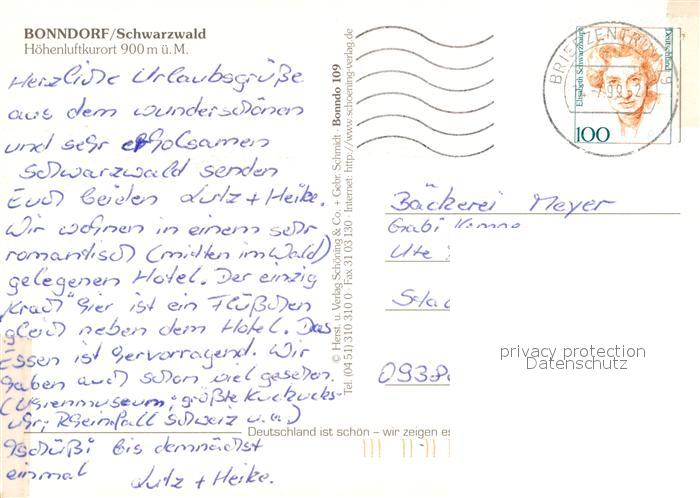 BONNDORF/Schwarzwald
Höhenluftkurort 900 m ü. M.
Herzliche Urlaubsgrüße
aus dem wunderschönen
und sehr erholsamen
Schwarzwald senden
Euch beiden Lutz + Heike.
Wir wohnen in einem sehr
romantisch (mitten im Wald)
gelegenen Hotel. Der einzig
"Krach" hier ist ein Flüßchen
gleich neben dem Hotel. Das
Essen ist hervorragend. Wir
haben auch schon viel gesehen.
(Uhrenmuseum, größte Kuckucks-
uhr, Rheinfall Schweiz u.a.)
Tschüßi bis demnächst
einmal Lutz + Heike.
Deutschland ist schön – wir zeigen es
© Herst. u. Verlag Schöning & Co. + Gebr. Schmidt · Bonndo 109
Tel. (04 51) 310 310 0 · Fax 31 03 130 · Internet: http://www.schoening-verlag.de
BRIEFZENTRUM
Elisabeth Schwarzhaupt
Deutschland
100
Bäckerei Meyer
Gabi
Ute
privacy protection
Datenschutz